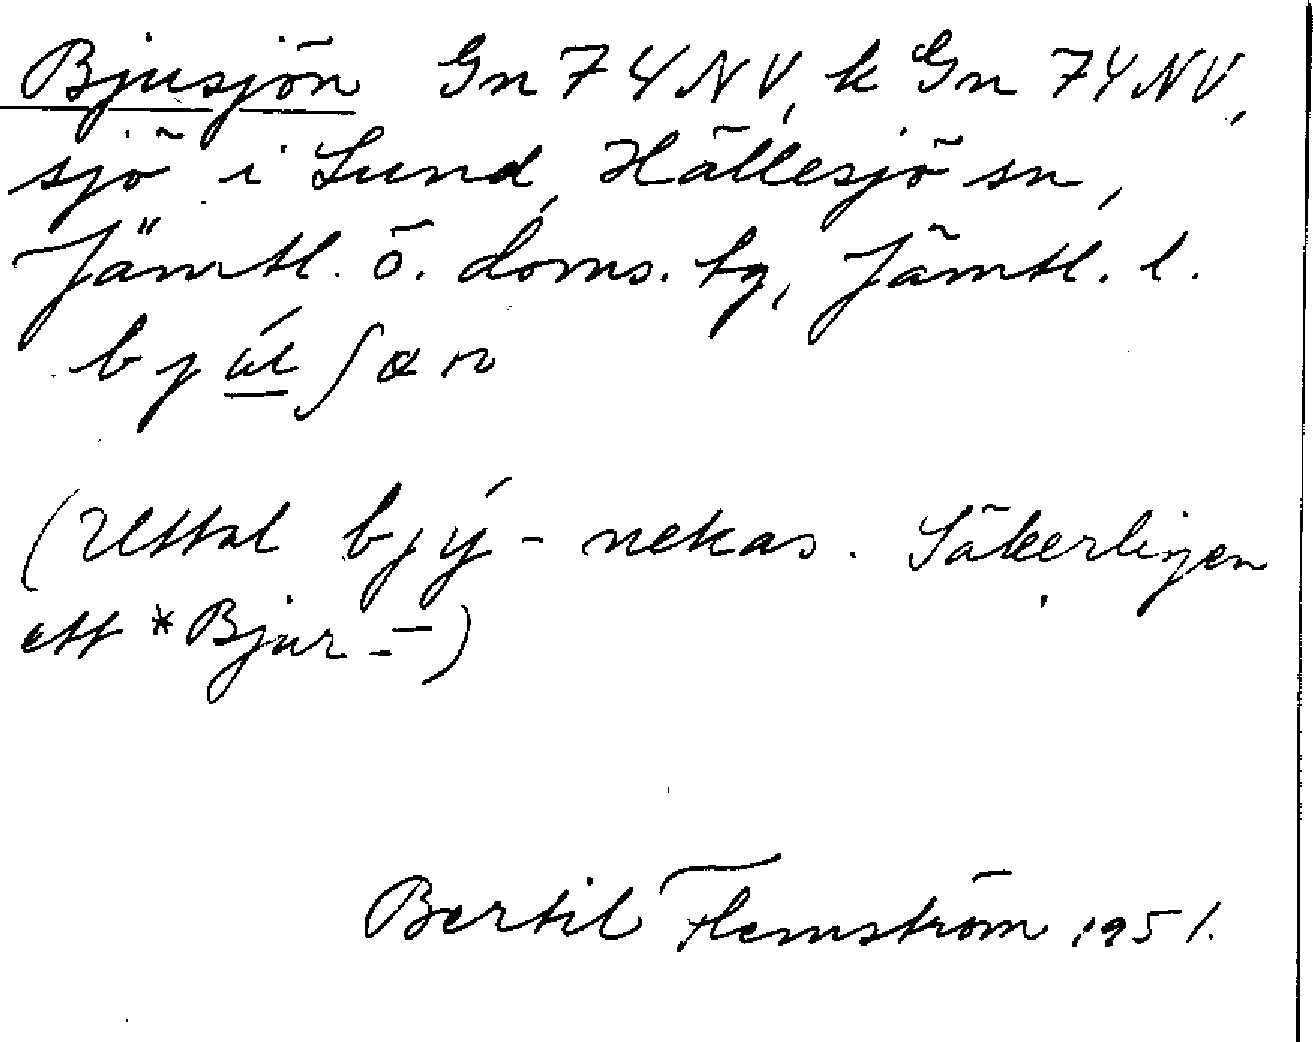 Bjusjön Gn 74 NV, k Gn 74 NV,
sjö i Lund, Hällesjö sn,
Jämtl. ö. doms. tg, Jämtl. l.
bjúʃøn
(Uttal bjý- nekas. Säkerligen
ett *Bjur-)
Bertil Flemström 1951.